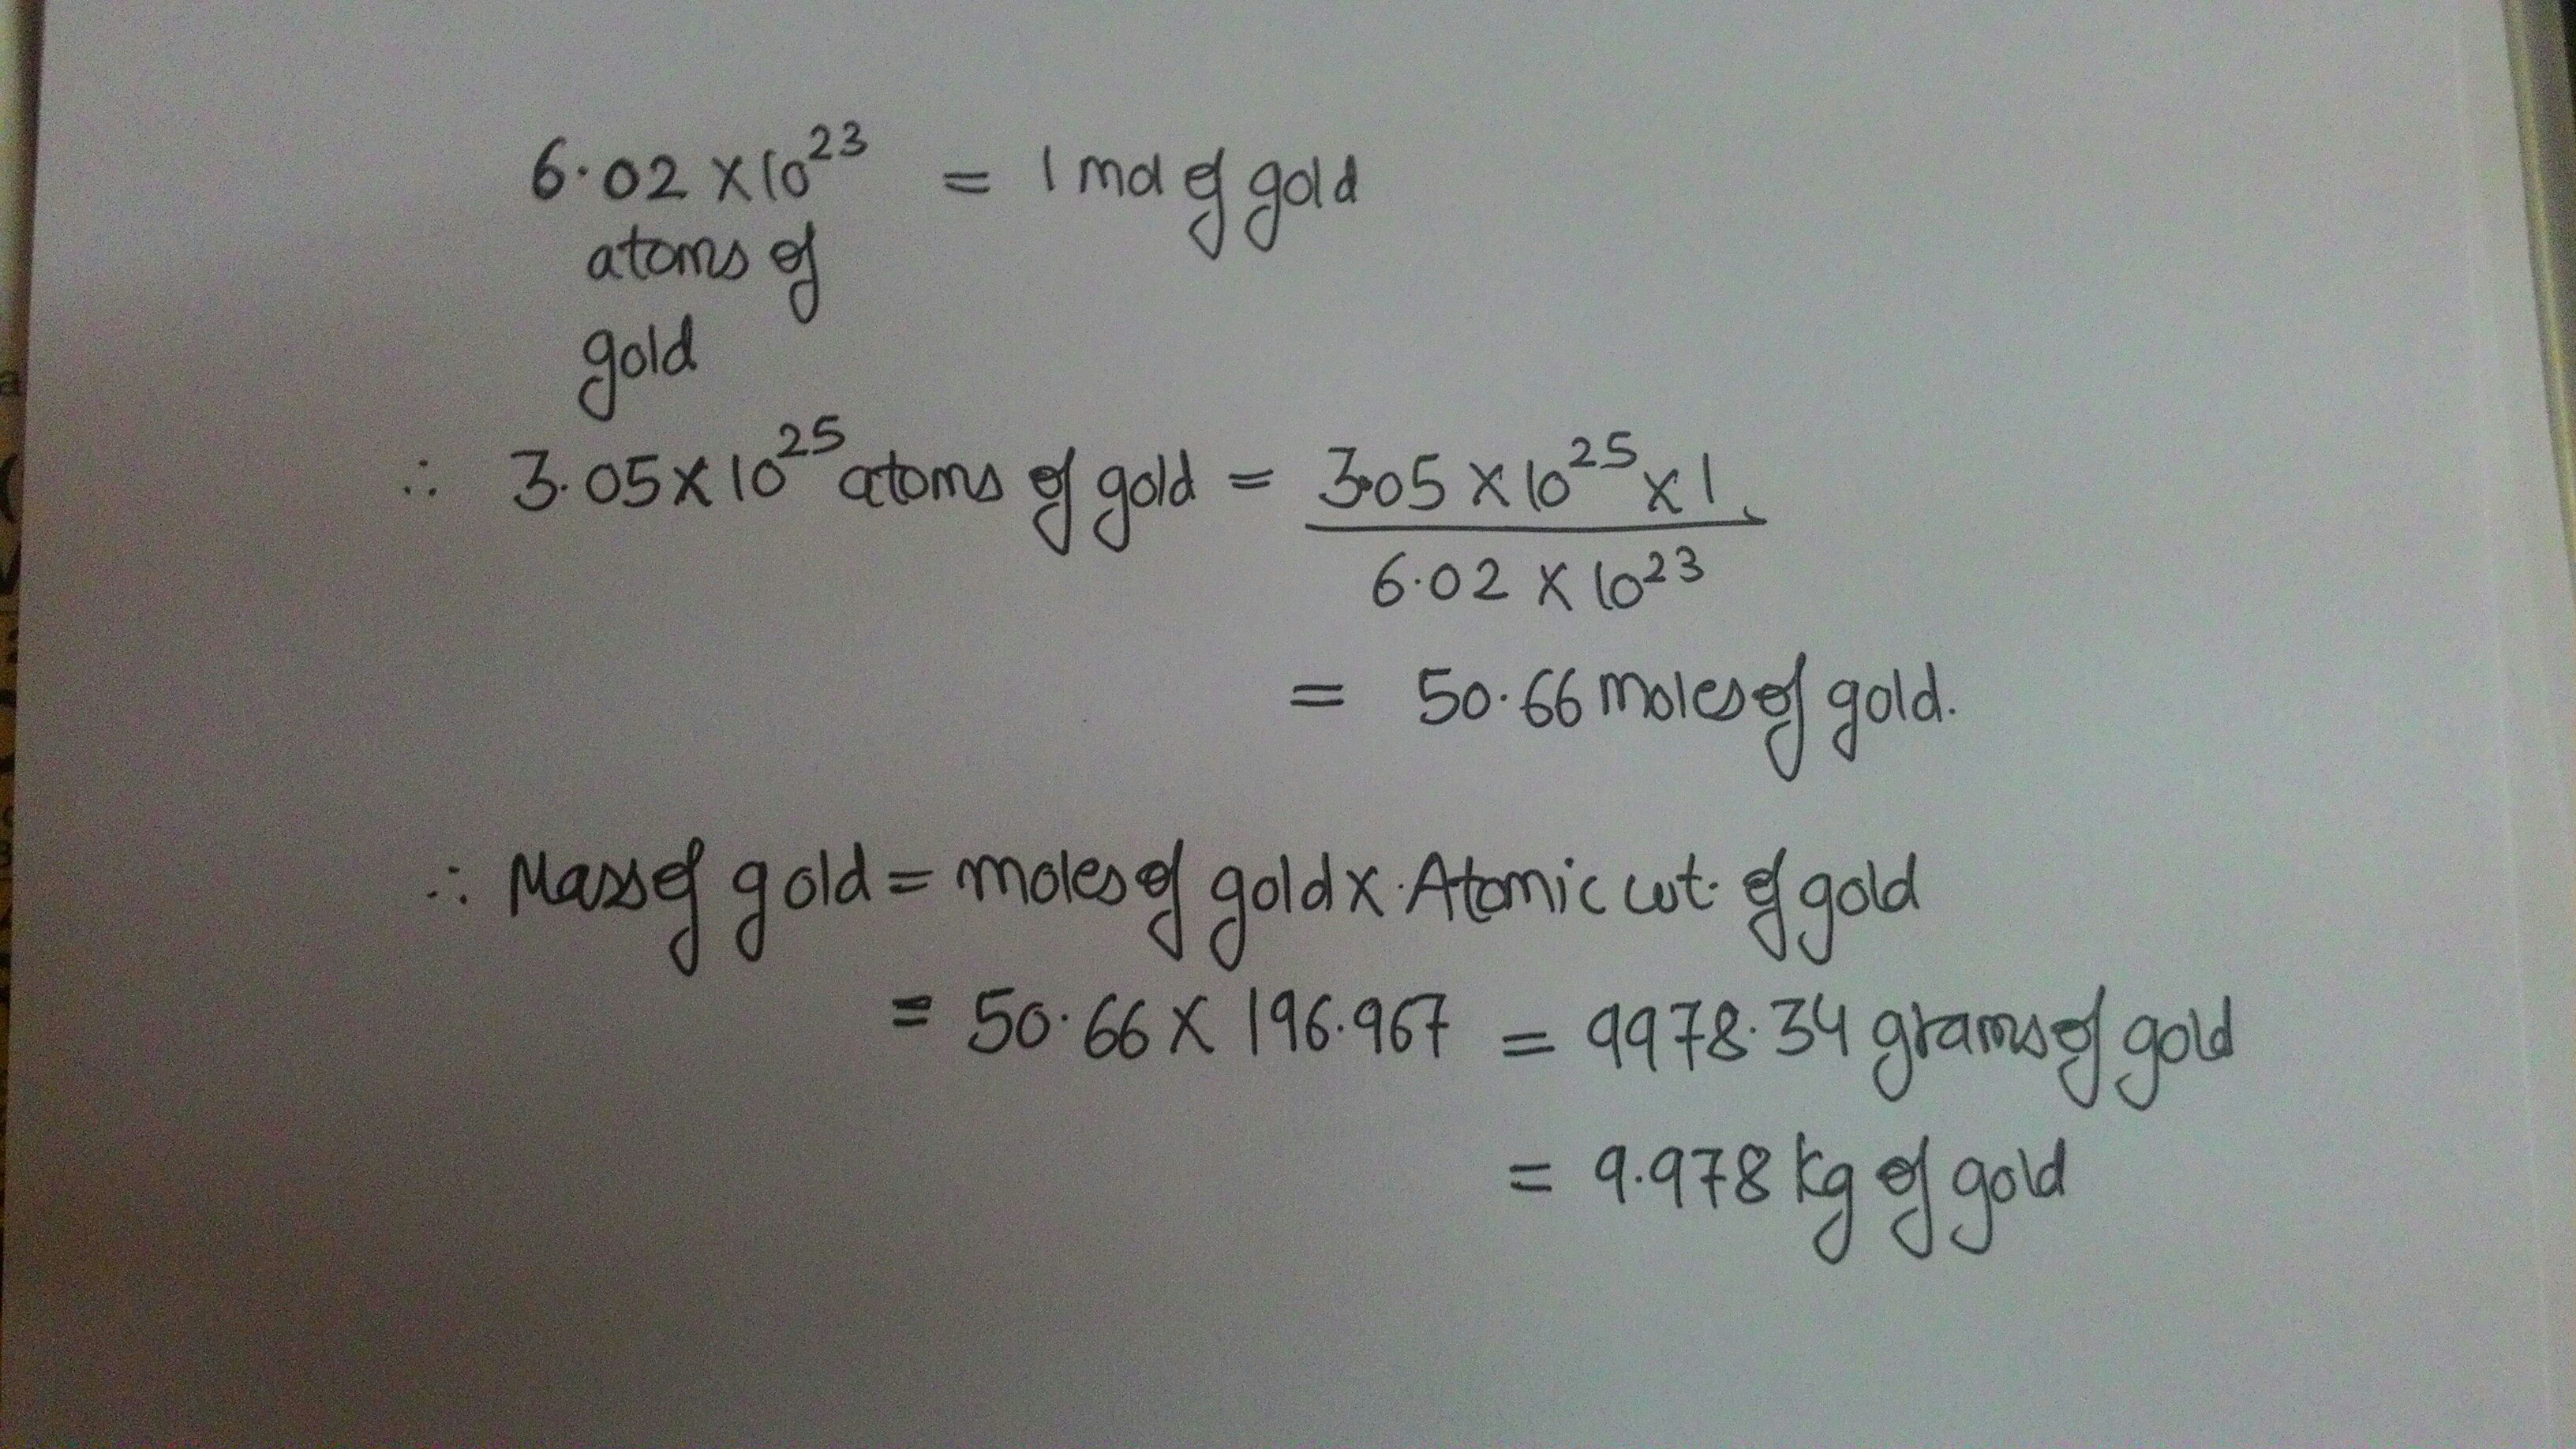 6.02 × 10²³ = 1 mol of gold
atoms of
gold
∴ 3.05 × 10²⁵ atoms of gold = 3.05 × 10²⁵ × 1
6.02 × 10²³
= 50.66 moles of gold.
∴ Mass of gold = moles of gold × Atomic wt. of gold
= 50.66 × 196.967 = 9978.34 grams of gold
= 9.978 kg of gold